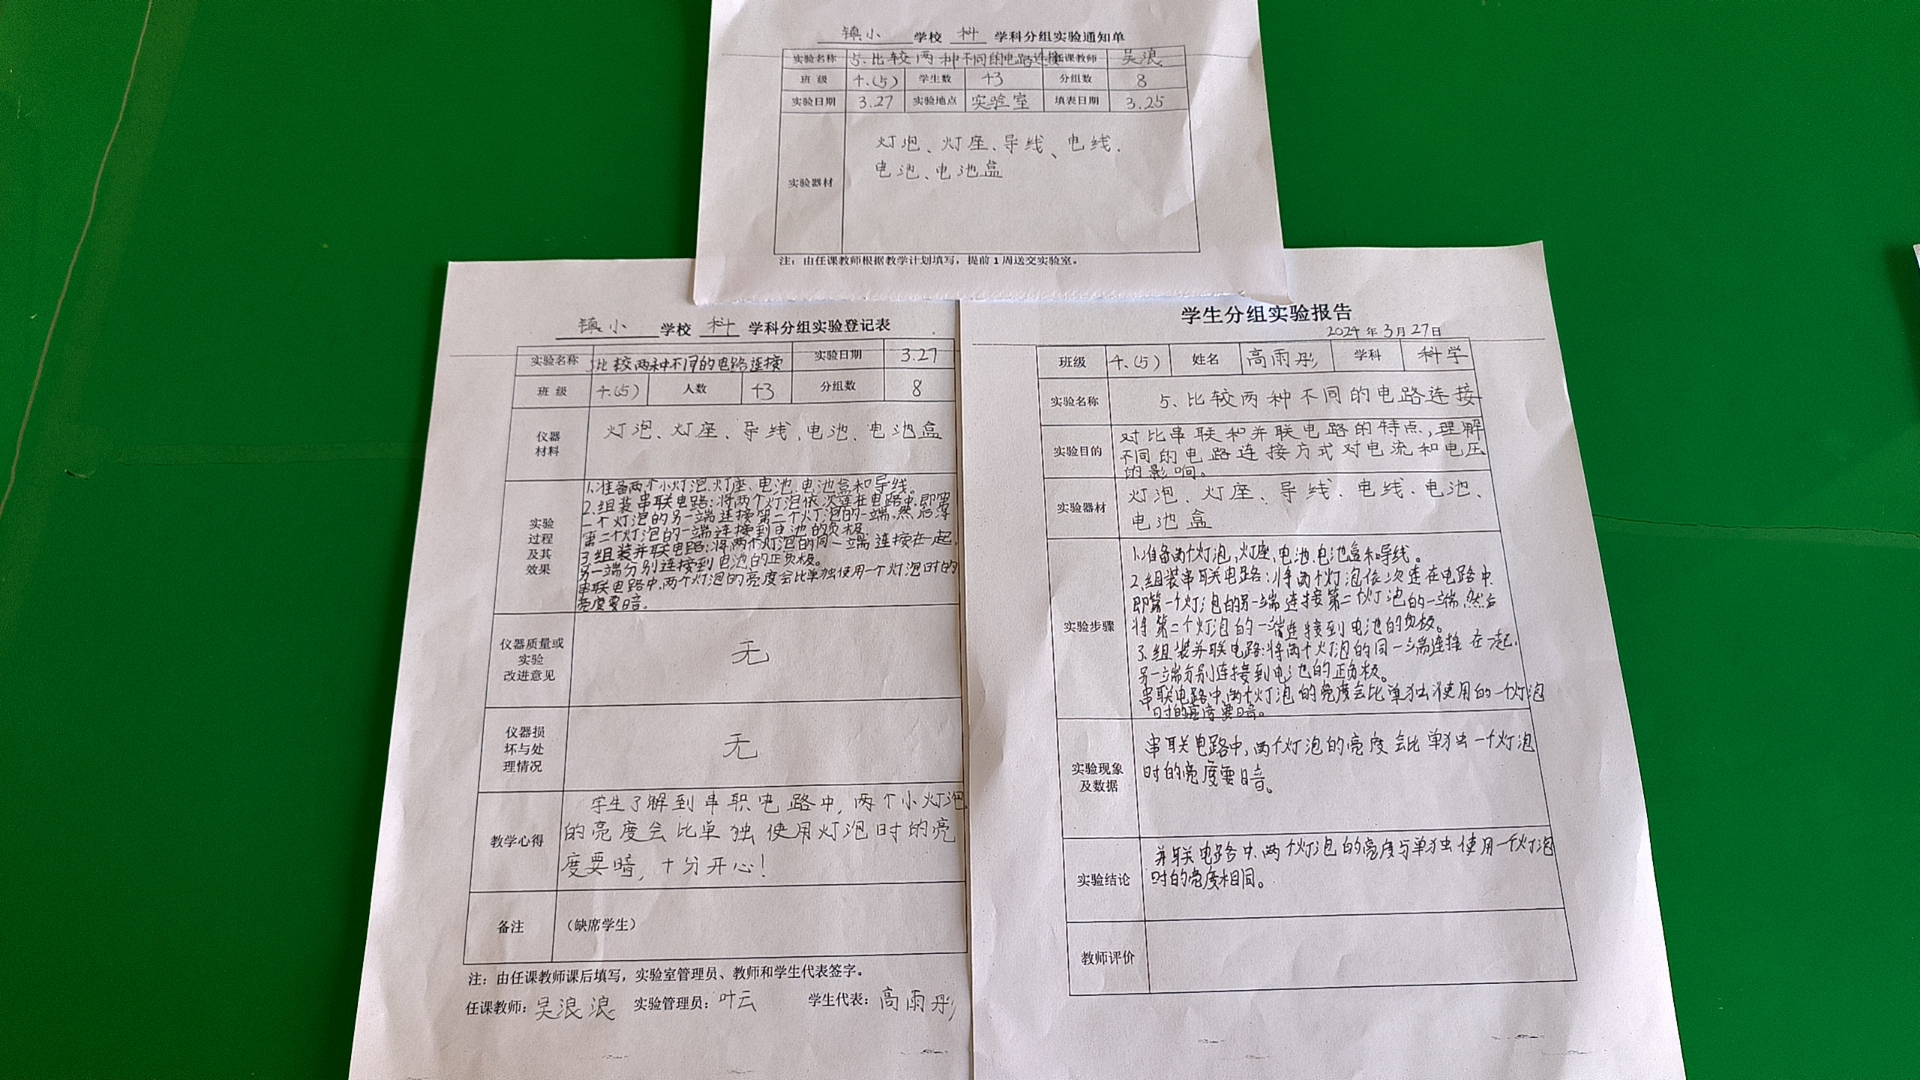 镇小 学校 科 学科分组实验通知单
实验名称 5.比较两种不同的电路连接 任课教师 吴浪
班 级 4.(5) 学生数 43 分组数 8
实验日期 3.27 实验地点 实验室 填表日期 3.25
灯泡、灯座、导线、电线.
电池、电池盒
实验器材
注：由任课教师根据教学计划填写，提前1周送交实验室。
镇小 学校 科 学科分组实验登记表
实验名称 比较两种不同的电路连接 实验日期 3.27
班 级 4.(5) 人数 43 分组数 8
仪器
材料
灯泡、灯座、导线、电池、电池盒
实验
过程
及其
效果
1.准备两个小灯泡、灯座、电池、电池盒和导线。
2.组装串联电路:将两个灯泡依次连在电路中,即第
一个灯泡的另一端连接第二个灯泡的一端,然后将
第二个灯泡的一端连接到电池的负极。
3.组装并联电路:将两个灯泡的同一端连接在一起,
另一端分别连接到电池的正负极。
串联电路中,两个灯泡的亮度会比单独使用一个灯泡时的
亮度要暗。
仪器质量或
实验
改进意见
无
仪器损
坏与处
理情况
无
教学心得
学生了解到串职电路中,两个小灯泡
的亮度会比单独使用灯泡时的亮
度要暗,十分开心!
备注 （缺席学生）
注：由任课教师课后填写，实验室管理员、教师和学生代表签字。
任课教师: 吴浪浪 实验管理员: 叶云 学生代表: 高雨彤
学生分组实验报告
2024年3月27日
班级 4.(5) 姓名 高雨彤 学科 科学
实验名称 5、比较两种不同的电路连接
实验目的
对比串联和并联电路的特点,理解
不同的电路连接方式对电流和电压
的影响。
实验器材
灯泡、灯座、导线、电线、电池、
电池盒
实验步骤
1.准备两个灯泡,灯座、电池、电池盒和导线。
2.组装串联电路:将两个灯泡依次连在电路中.
即第一个灯泡的另一端连接第二个灯泡的一端,然后
将第二个灯泡的一端连接到电池的负极。
3.组装并联电路:将两个灯泡的同一端连接在一起.
另一端分别连接到电池的正负极。
串联电路中,两个灯泡的亮度会比单独使用的一个灯泡
时的亮度要暗。
实验现象
及数据
串联电路中,两个灯泡的亮度会比单独一个灯泡
时的亮度要暗。
实验结论
并联电路中,两个灯泡的亮度与单独使用一个灯泡
时的亮度相同。
教师评价